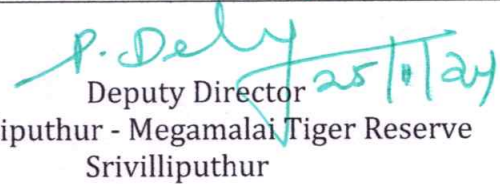 Deputy Director
iputhur - Megamalai Tiger Reserve
Srivilliputhur